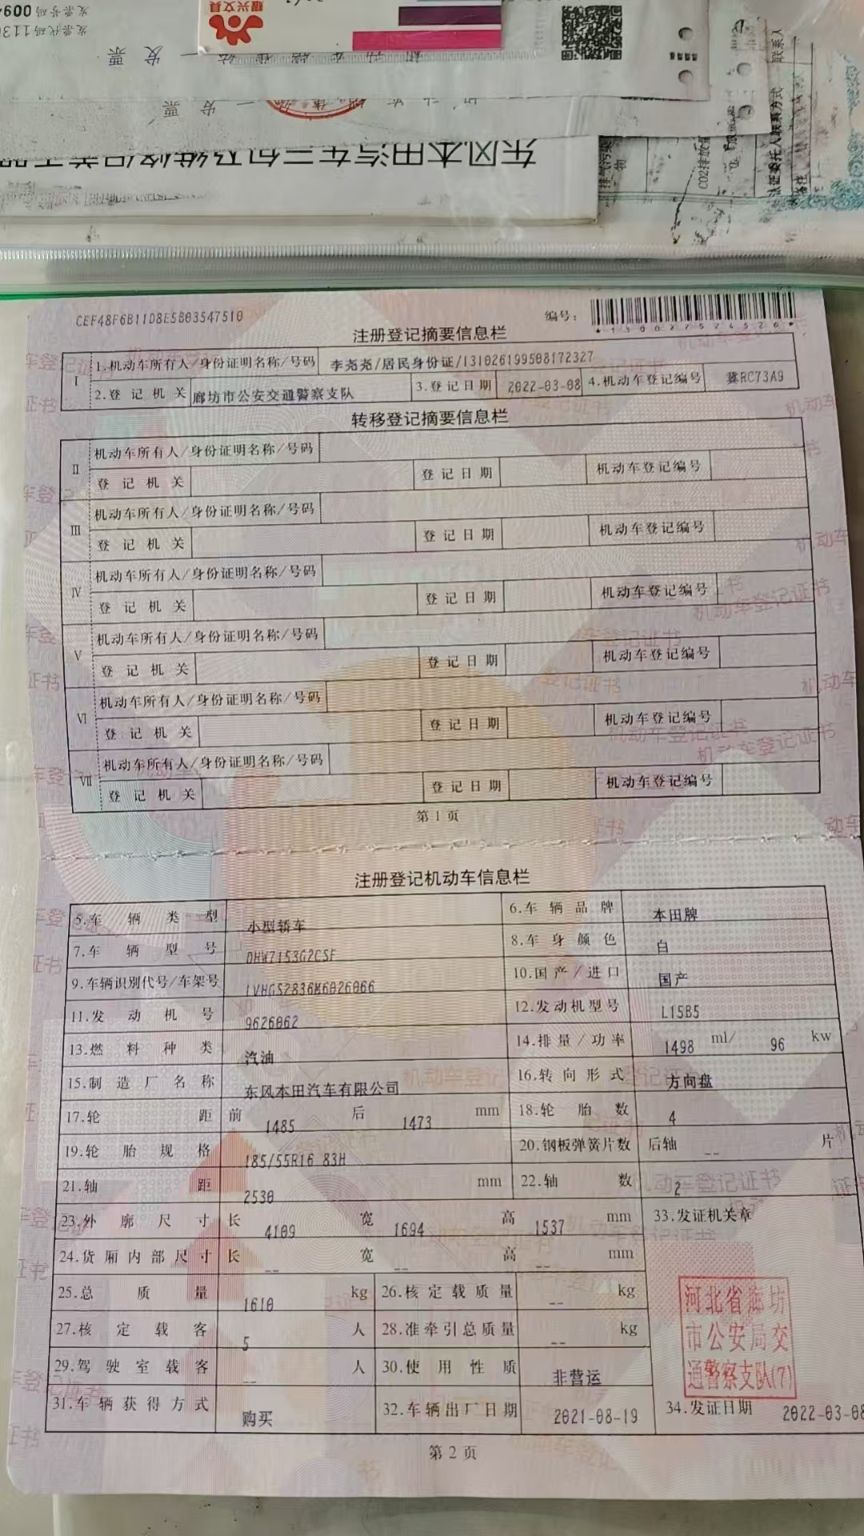 耀兴文具
发票号码 0094
发票代码 1130
票
发
一
东风本田汽车三包及维修保养手册
联系人
认证委托人联系方式
备注
CEF48F6B11D8E5B03547510
编号：
*130027524526*
注册登记摘要信息栏
I
1.机动车所有人/身份证明名称/号码 李尧尧/居民身份证/131026199508172327
2.登记机关 廊坊市公安交通警察支队 3.登记日期 2022-03-08 4.机动车登记编号 冀RC73A9
转移登记摘要信息栏
II
机动车所有人/身份证明名称/号码
登记机关 登记日期 机动车登记编号
III
机动车所有人/身份证明名称/号码
登记机关 登记日期 机动车登记编号
IV
机动车所有人/身份证明名称/号码
登记机关 登记日期 机动车登记编号
V
机动车所有人/身份证明名称/号码
登记机关 登记日期 机动车登记编号
VI
机动车所有人/身份证明名称/号码
登记机关 登记日期 机动车登记编号
VII
机动车所有人/身份证明名称/号码
登记机关 登记日期 机动车登记编号
第1页
注册登记机动车信息栏
5.车辆类型 小型轿车 6.车辆品牌 本田牌
7.车辆型号 DHW7153G2CSF 8.车身颜色 白
9.车辆识别代号/车架号 LVHGS2836M6026066 10.国产/进口 国产
11.发动机号 9626062 12.发动机型号 L15B5
13.燃料种类 汽油 14.排量/功率 1498 ml/ 96 kw
15.制造厂名称 东风本田汽车有限公司 16.转向形式 方向盘
17.轮距 前 1485 后 1473 mm 18.轮胎数 4
19.轮胎规格 185/55R16 83H 20.钢板弹簧片数 后轴 -- 片
21.轴距 2530 mm 22.轴数 2
23.外廓尺寸 长 4109 宽 1694 高 1537 mm 33.发证机关章
24.货厢内部尺寸 长 -- 宽 -- 高 -- mm
25.总质量 1610 kg 26.核定载质量 -- kg
27.核定载客 5 人 28.准牵引总质量 -- kg
29.驾驶室载客 -- 人 30.使用性质 非营运
31.车辆获得方式 购买 32.车辆出厂日期 2021-08-19 34.发证日期 2022-03-08
河北省廊坊
市公安局交
通警察支队(7)
第2页